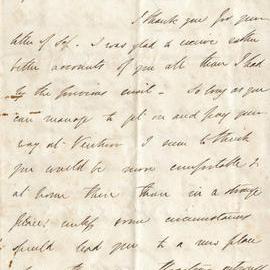 I thank you for your
letter of 30/. I was glad to receive rather
better accounts of you all than I had
by the previous mail - So long as you
can manage to get on and pay your
way at I seem to think
you would be more comfortable &
at home there than in a strange
place; unless some circumstances
should lead you to a new place